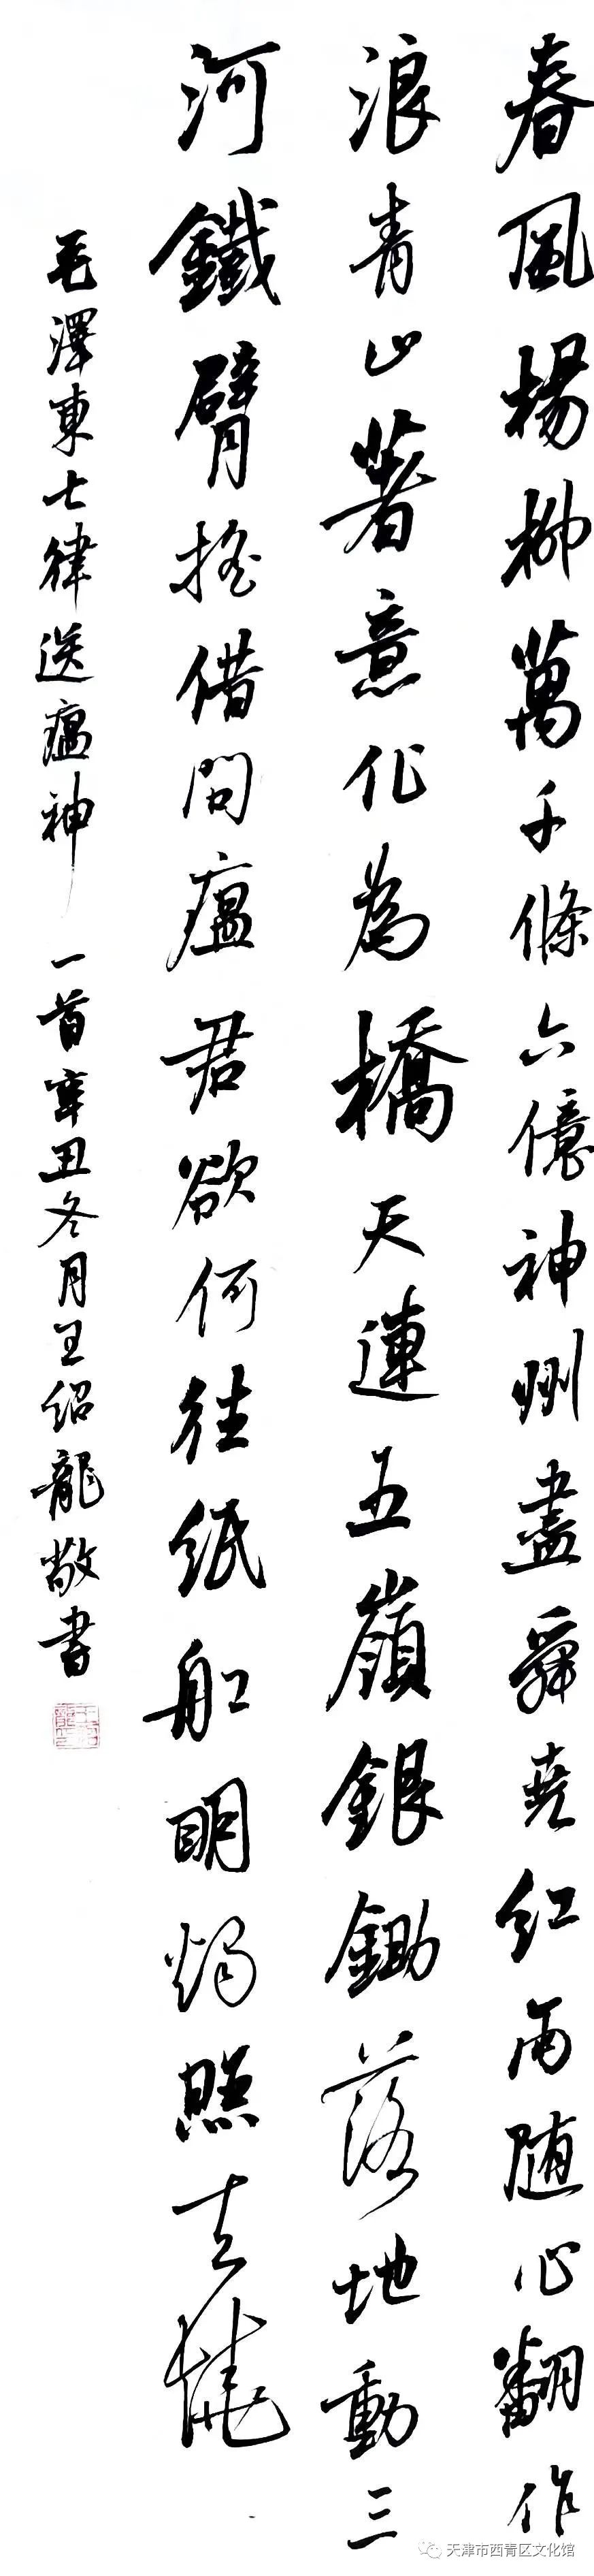 春風楊柳萬千條六億神州盡舜堯紅雨随心翻作
浪青山著意化為橋天連五嶺銀鋤落地動三
河鐵臂搖借問瘟君欲何往纸船明燭照天燒
毛澤東七律送瘟神 一首辛丑冬月王绍龍敬書
天津市西青区文化馆